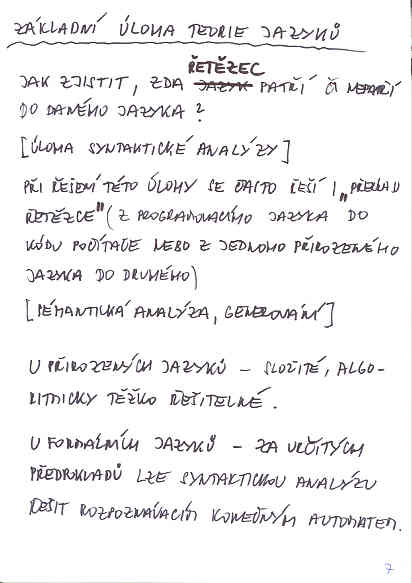 ZÁKLADNÍ ÚLOHA TEORIE JAZYKŮ
ŘETĚZEC
JAK ZJISTIT, ZDA JAZYK PATŘÍ ČI NEPATŘÍ
DO DANÉHO JAZYKA ?
[ÚLOHA SYNTAKTICKÉ ANALÝZY]
PŘI ŘEŠENÍ TÉTO ÚLOHY SE ČASTO ŘEŠÍ I „PŘEKLAD
ŘETĚZCE" (Z PROGRAMOVACÍHO JAZYKA DO
KÓDU POČÍTAČE NEBO Z JEDNOHO PŘIROZENÉHO
JAZYKA DO DRUHÉHO)
[SÉMANTICKÁ ANALÝZA, GENEROVÁNÍ]
U PŘIROZENÝCH JAZYKŮ – SLOŽITÉ, ALGO-
RITMICKY TĚŽKO ŘEŠITELNÉ.
U FORMÁLNÍCH JAZYKŮ – ZA URČITÝCH
PŘEDPOKLADŮ LZE SYNTAKTICKOU ANALÝZU
ŘEŠIT ROZPOZNÁVACÍM KONEČNÝM AUTOMATEM.
7